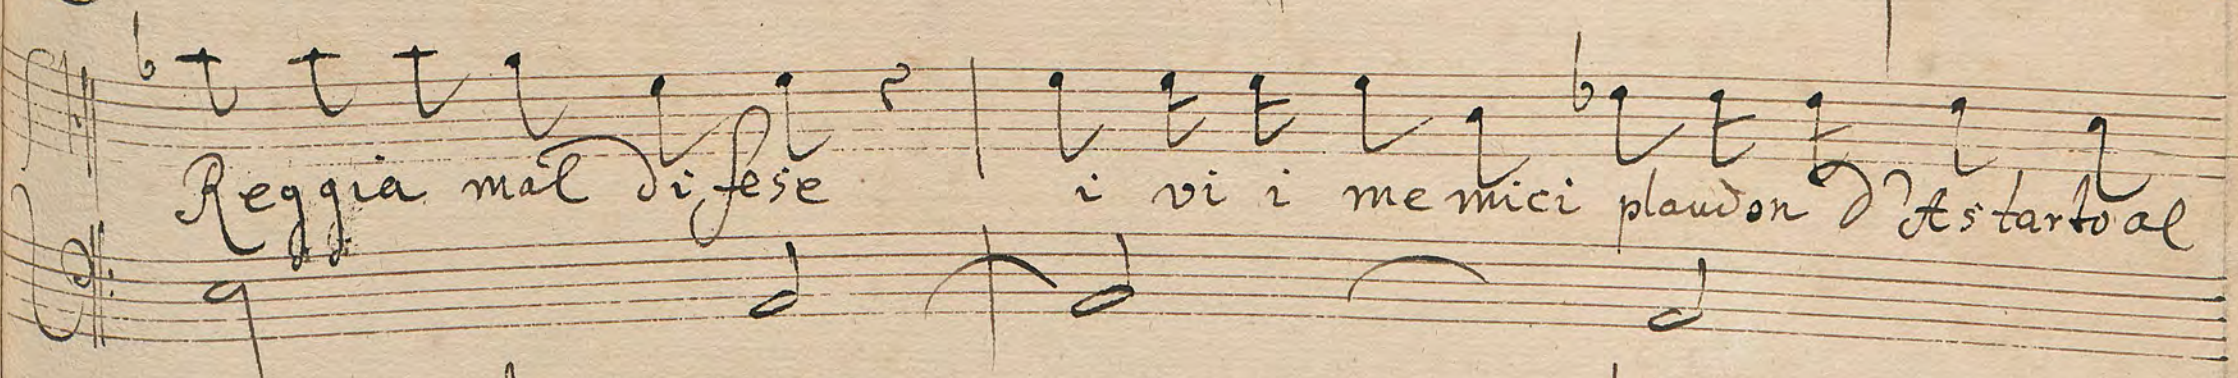 Reggia mal difese i vi i me mici plaudon d'Astarto al